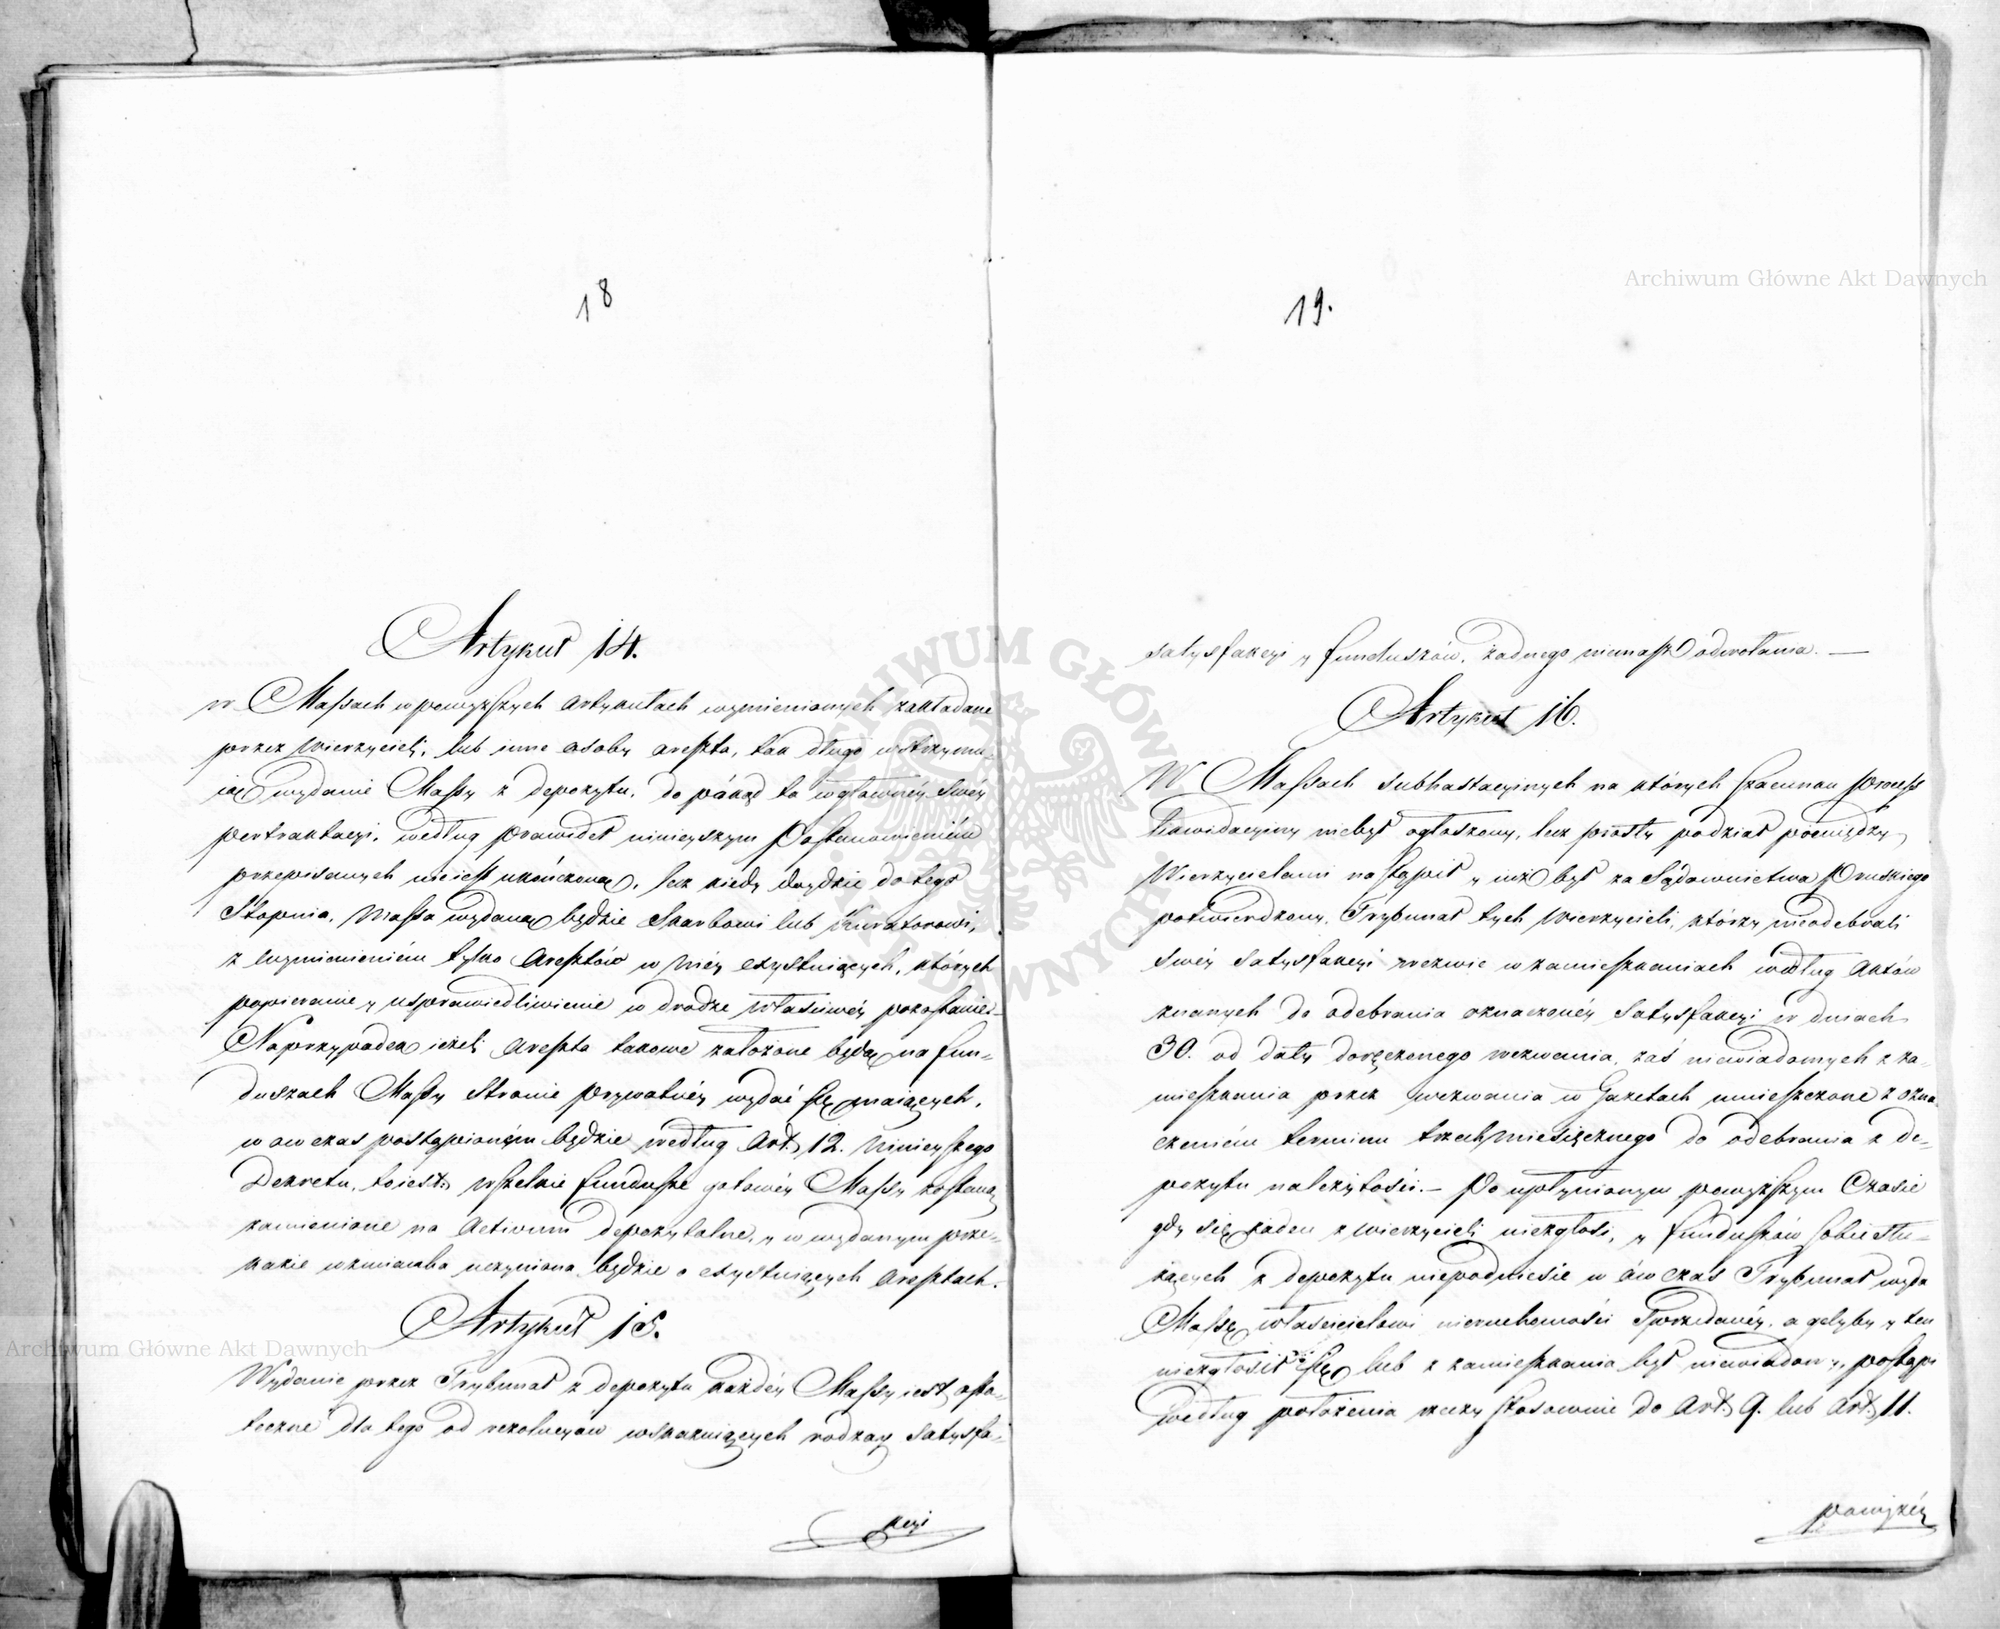 18
Artykuł 14.
w Massach w powyższych Artykułach wymienionych zakładane
przez Wierzycieli, lub inne osoby areszta, tak długo wstrzymu-
ią wydanie Massy z depozytu, do pókąd ta w główney swéy
pertraktacyi, według prawideł ninieyszym Postanowieniem
przepisanych nieiest ukończoną, lecz kiedy doydzie do tego
Stopnia, Massa wydana będzie Skarbowi lub Kuratorowi,
z wymienieniem tylko Aresztów w niéy exystuiących, których
popieranie y usprawiedliwienie w drodze właściwéy pozostanie.
Naprzypadek ieżeli Areszta takowe założone będą na fun-
duszach Massy Stronie prywatnéy wydać się maiących,
w ów czas postąpionym będzie według Art. 12. Ninieyszego
Dekretu, toiest: wszelkie fundusze gotowéy Massy zostaną
zamienione na Activum depozytalne, y w wydanym prze-
kazie wzmianka uczyniona będzie o exystuiących Aresztach.
Artykuł 15.
Wydanie przez Trybunał z depozytu każdéy Massy iest osta-
teczne dla tego od rezolucyów wskazuiących rodzay satysfa-
kcyi
19.
satysfakcyi y funduszów, żadnego niemasz odwołania. —
Artykuł 16.
W Massach subhastacyinych na których szacunek process
likwidacyiny niebył ogłoszony, lecz prosty podział pomiędzy
Wierzycielami nastąpił y iuż był za Sądownictwa Pruskiego
potwierdzony, Trybunał tych Wierzycieli, którzy nieodebrali
swéy satysfakcyi wezwie w zamieszkaniach według Aktów
znanych do odebrania oznaczonéy satysfakcyi w dniach
30. od daty doręczonego wezwania, zaś niewiadomych z za-
mieszkania przez wezwania w Gazetach umieszczone z ozna-
czeniem terminu trzechmiesięcznego do odebrania z de-
pozytu należytości. — Po upłynionym powyższym Czasie
gdy się żaden z wierzycieli niezgłosi, y funduszów sobie słu-
żących z depozytu niepodniesie w ów czas Trybunał wyda
Massę właścicielowi nieruchomości sprzedanéy, a gdyby y ten
niezgłosił się lub z zamieszkania był niewiadomy, postąpi
według położenia rzeczy stosownie do Art. 9. lub Art. 11.
powyżéy
Archiwum Główne Akt Dawnych
Archiwum Główne Akt Dawnych